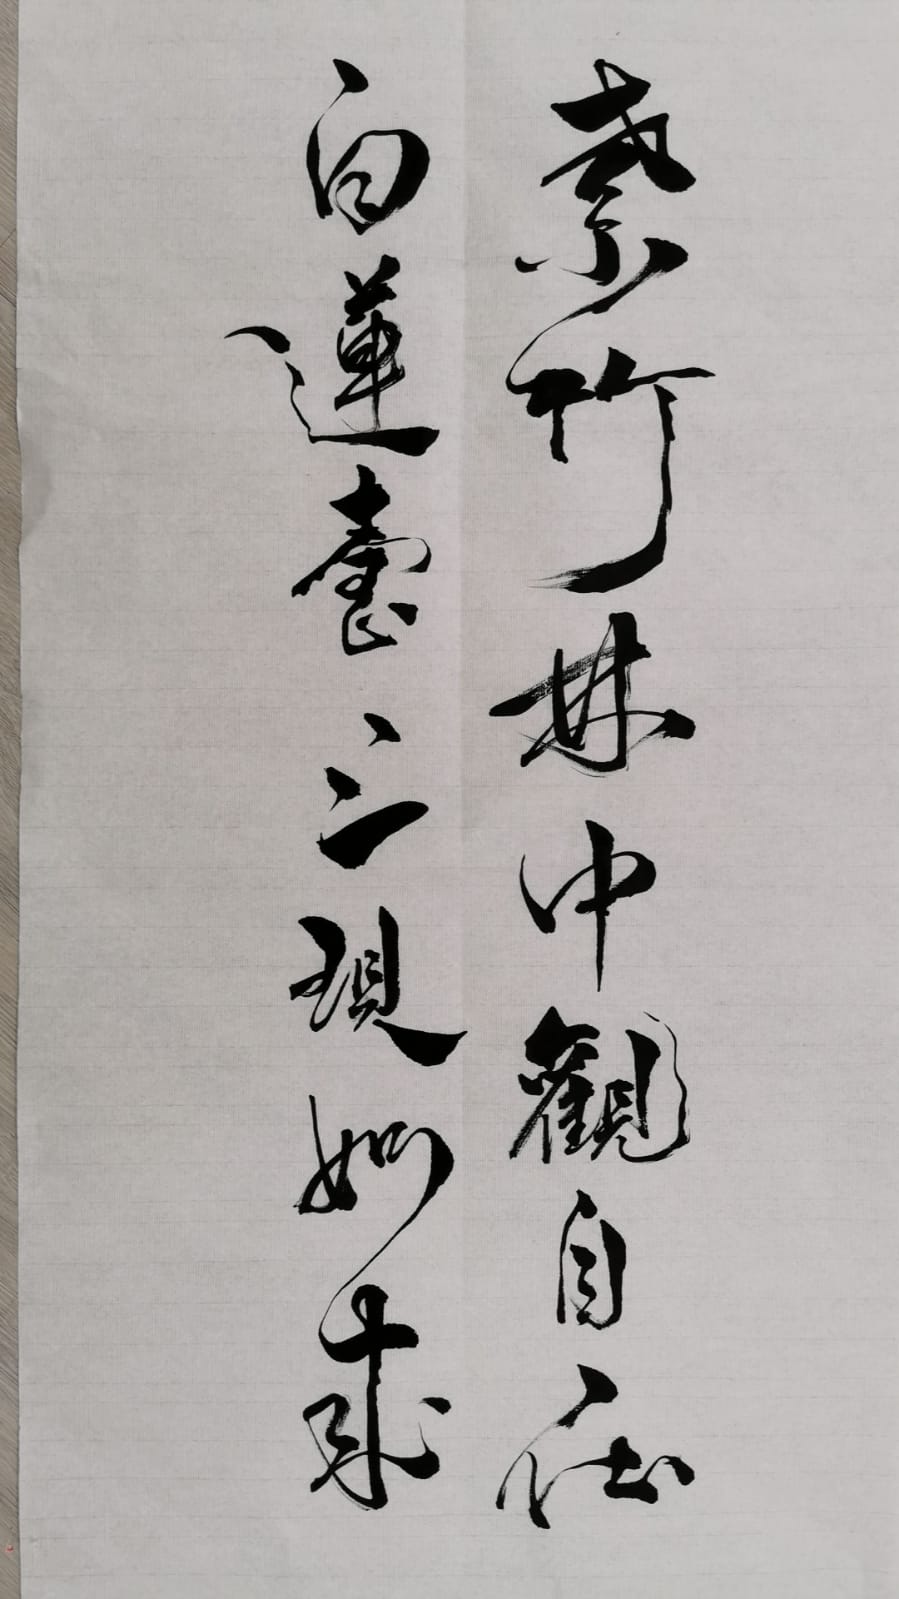 紫竹林中觀自在
白蓮臺上現如來